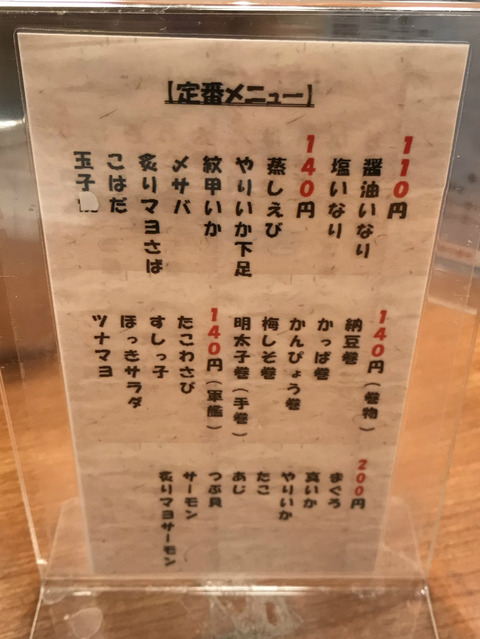 【定番メニュー】
110円
醤油いなり
塩いなり
140円
蒸しえび
やりいか下足
紋甲いか
〆サバ
炙りマヨさば
こはだ
玉子
140円(巻物)
納豆巻
かっぱ巻
かんぴょう巻
梅しそ巻
明太子巻(手巻)
140円(軍艦)
たこわさび
すしっ子
ほっきサラダ
ツナマヨ
200円
まぐろ
真いか
やりいか
たこ
あじ
つぶ貝
サーモン
炙りマヨサーモン